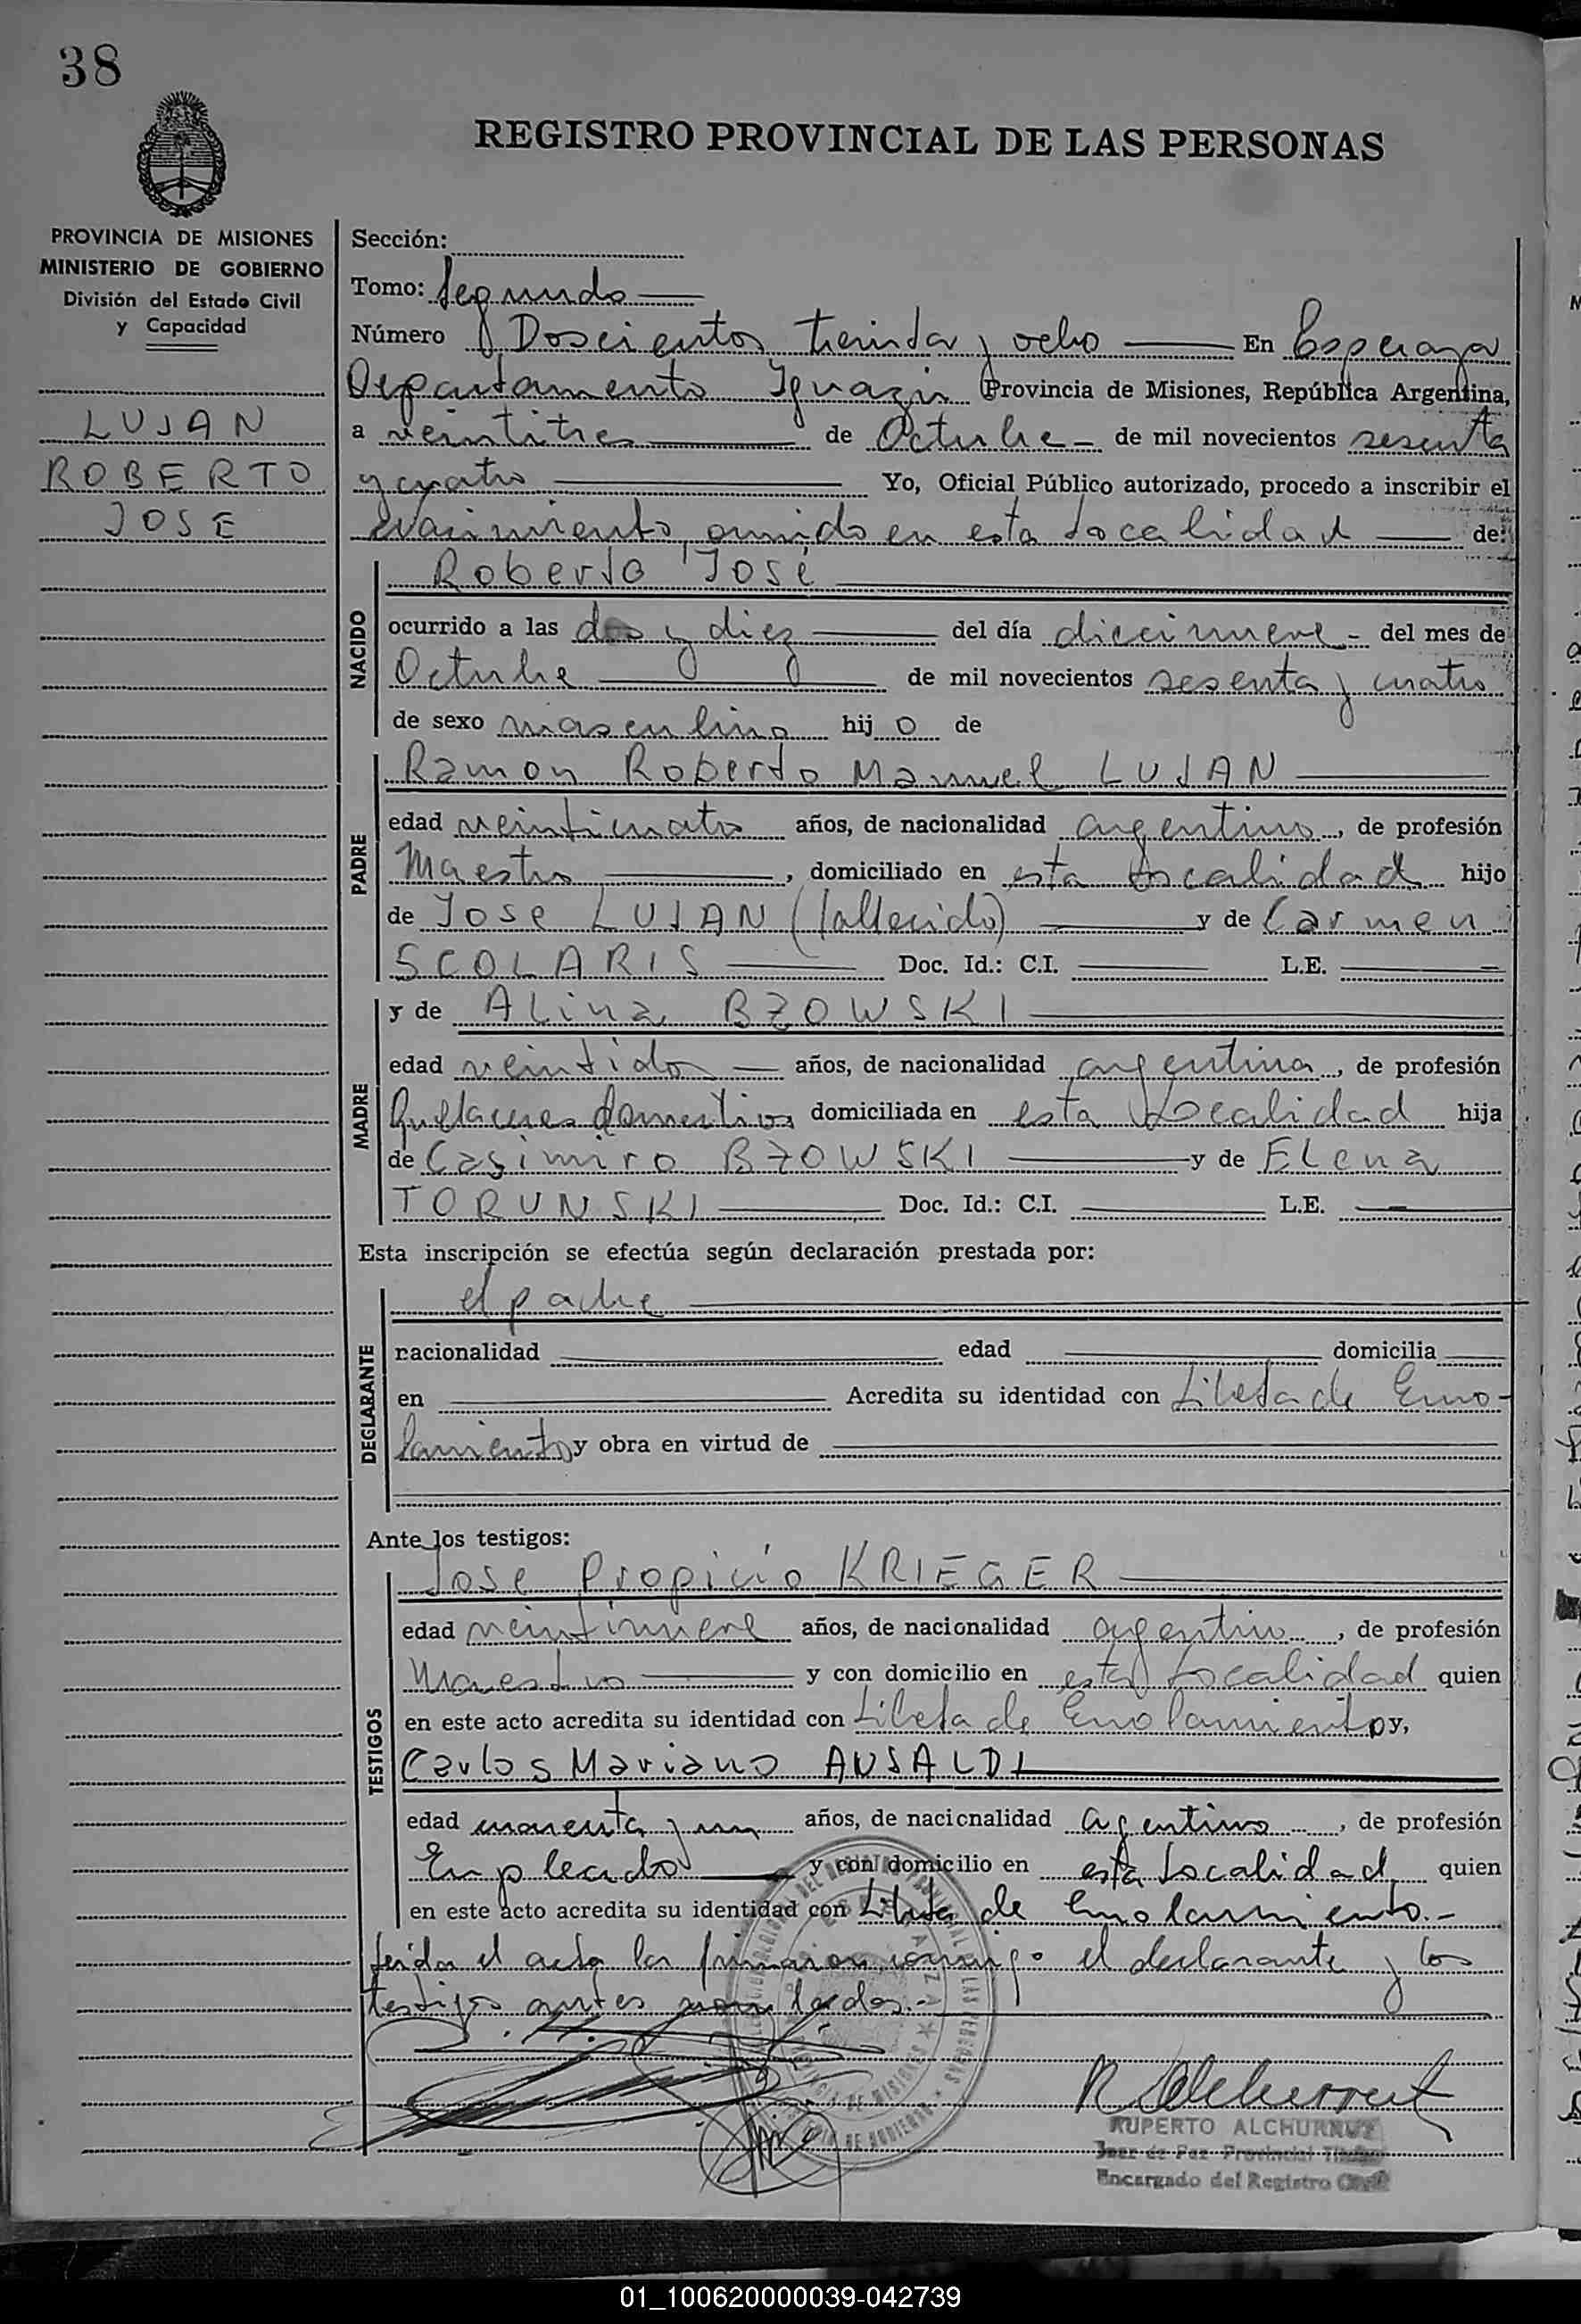 38
REGISTRO PROVINCIAL DE LAS PERSONAS
PROVINCIA DE MISIONES
MINISTERIO DE GOBIERNO
División del Estado Civil
y Capacidad
LUJAN
ROBERTO
JOSE
Sección:
Tomo: Segundo
Número Doscientos treinta y ocho En Esperanza
Departamento Iguazú Provincia de Misiones, República Argentina,
a veintitres de Octubre de mil novecientos sesenta
y cuatro Yo, Oficial Público autorizado, procedo a inscribir el
nacimiento, ocurrido en esta Localidad de:
NACIDO
Roberto José
ocurrido a las dos y diez del día diecinueve - del mes de
Octubre de mil novecientos sesenta y cuatro
de sexo masculino hijo de
PADRE
Ramon Roberto Manuel LUJAN
edad veinticuatro años, de nacionalidad argentino, de profesión
Maestro, domiciliado en esta Localidad hijo
de Jose LUJAN (fallecido) y de Carmen
SCOLARIS Doc. Id.: C.I. L.E.
MADRE
y de Alina BZOWSKI
edad veintidos años, de nacionalidad argentina, de profesión
Quehaceres domesticos domiciliada en esta Localidad hija
de Casimiro BZOWSKI y de Elena
TORUNSKI Doc. Id.: C.I. L.E.
Esta inscripción se efectúa según declaración prestada por:
DECLARANTE
el padre
nacionalidad edad domicilia
en Acredita su identidad con Libreta de Enro-
lamiento y obra en virtud de
Ante los testigos:
TESTIGOS
Jose Propicio KRIEGER
edad veintinueve años, de nacionalidad argentino, de profesión
Maestro y con domicilio en esta Localidad quien
en este acto acredita su identidad con Libreta de Enrolamiento y,
Carlos Mariano AUSALDI
edad cuarenta y un años, de nacionalidad argentino, de profesión
Empleado y con domicilio en esta Localidad quien
en este acto acredita su identidad con Libreta de Enrolamiento.-
Leida el acta la firmaron conmigo el declarante y los
testigos antes nombrados.-
RUPERTO ALCHURRUT
Juez de Paz Provincial Titular
Encargado del Registro Civil
01_100620000039-042739